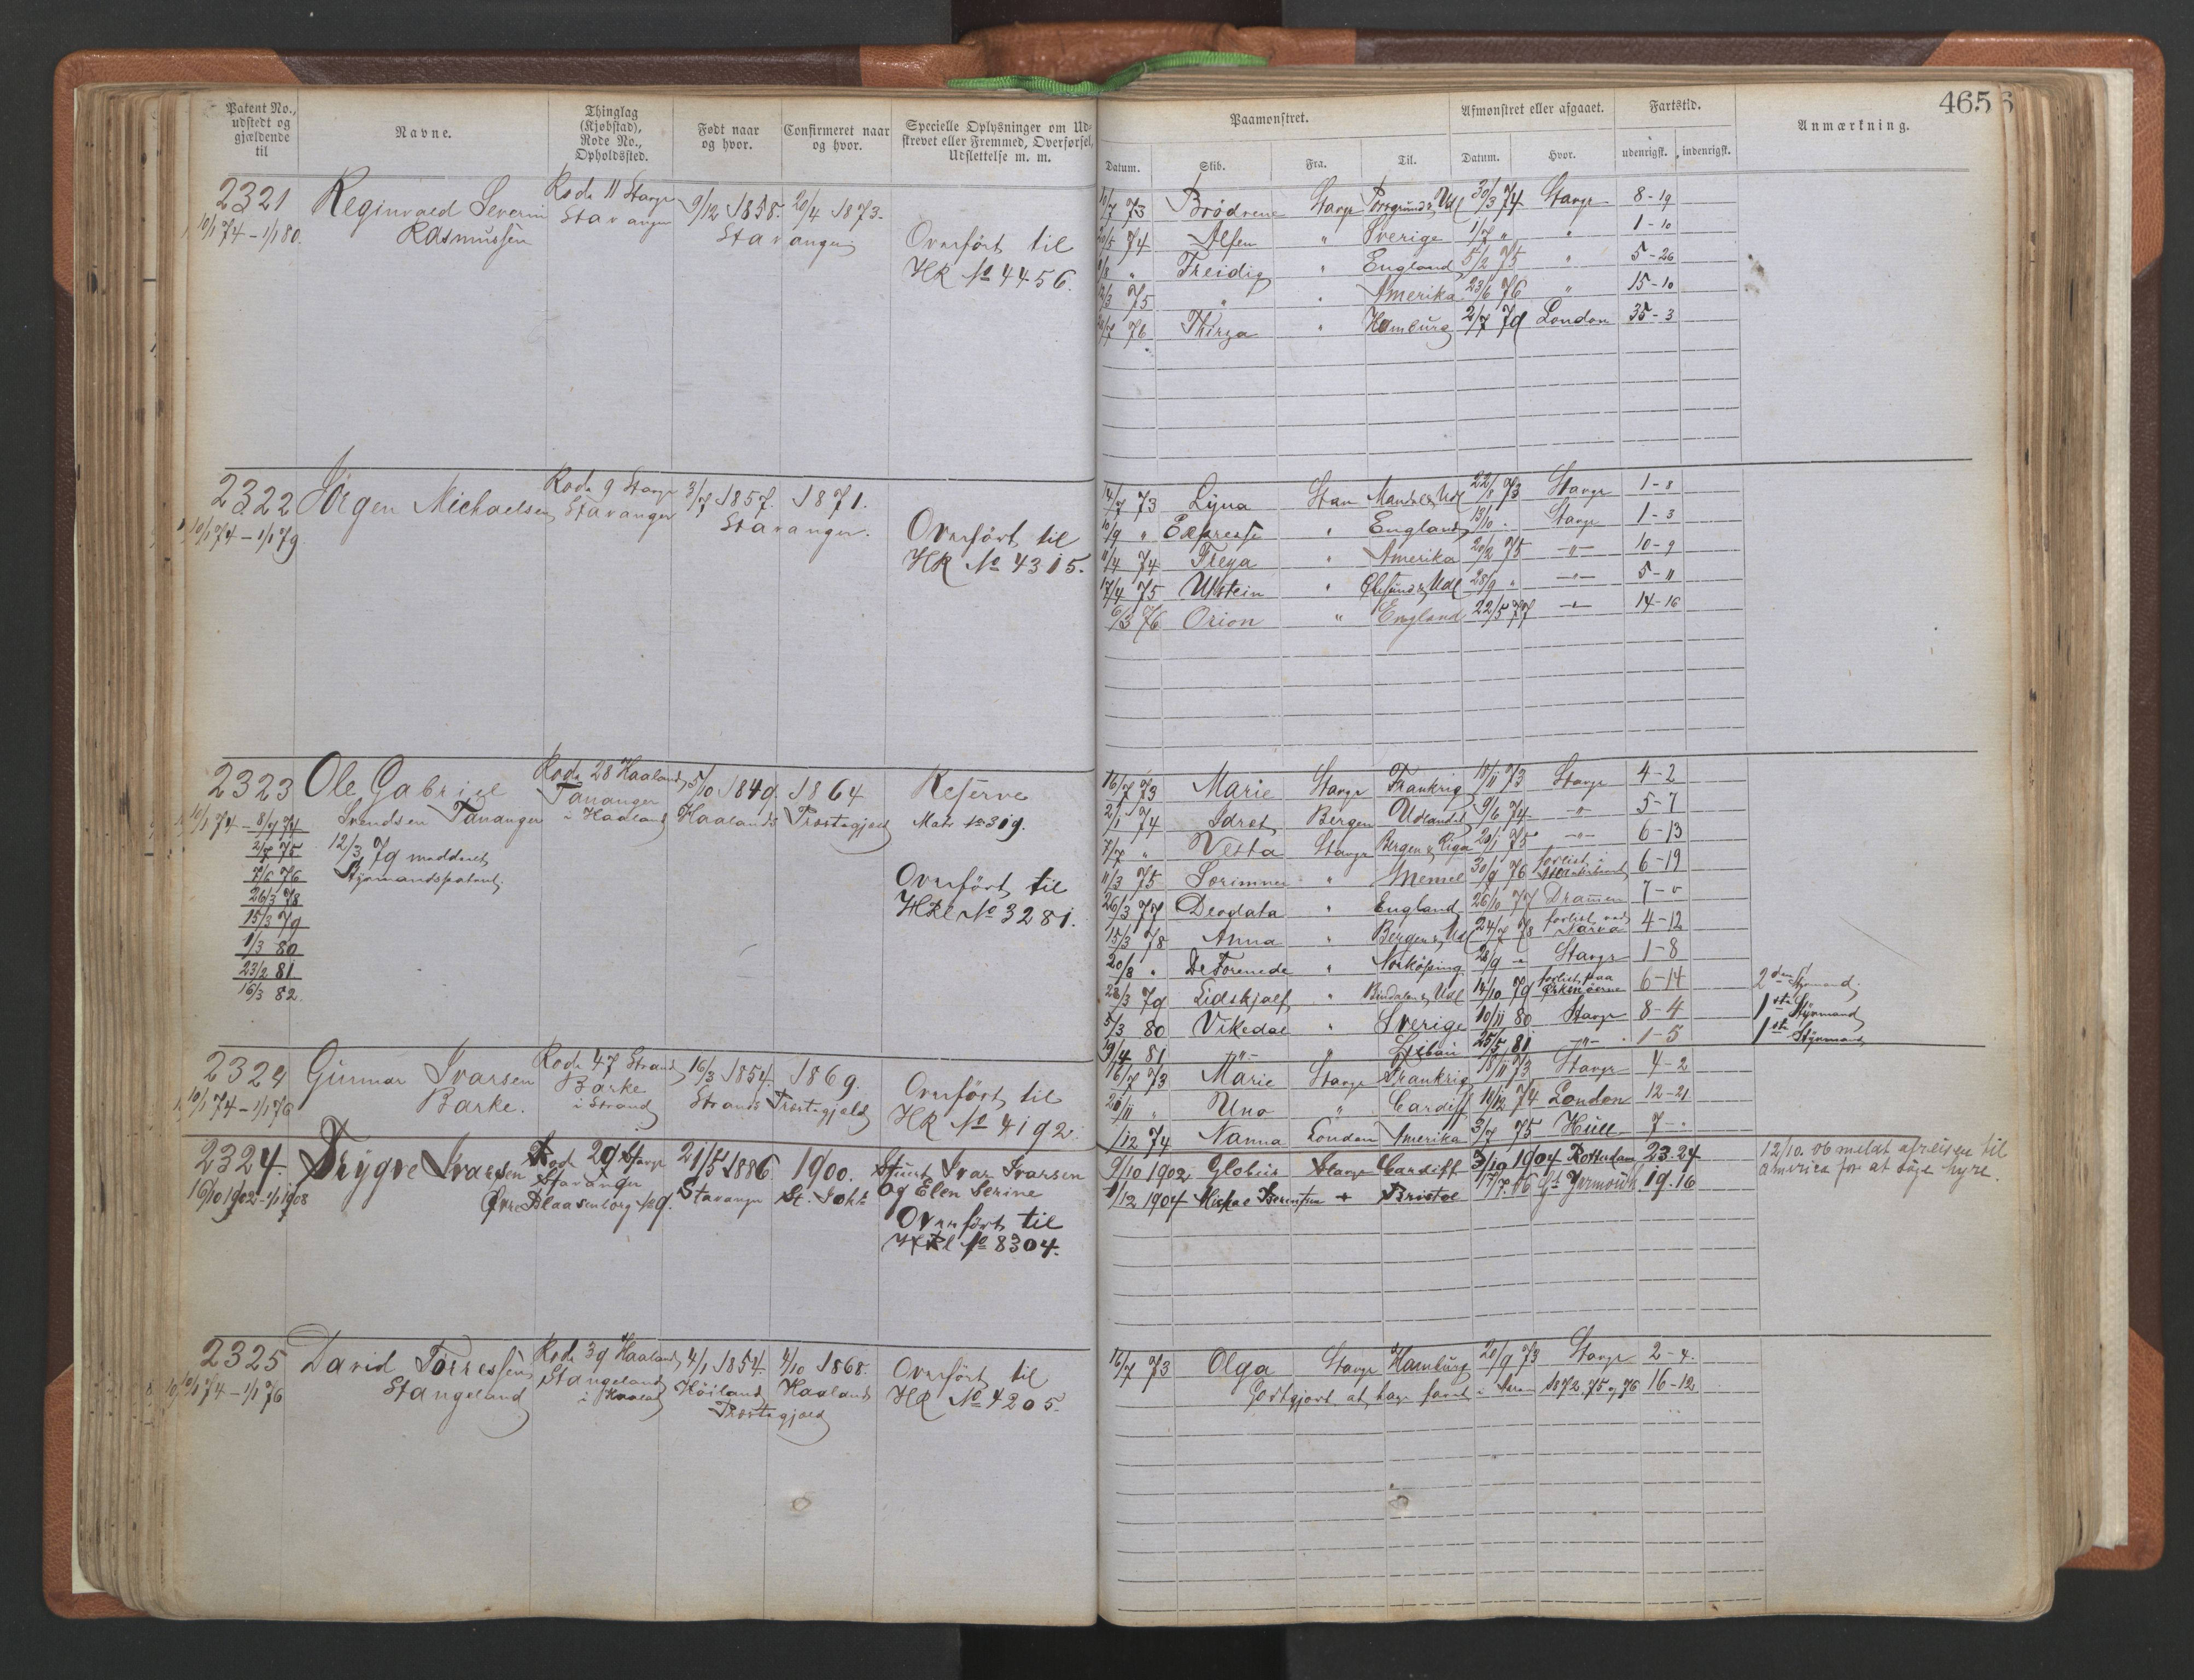 465
Patent No., udstedt og gjældende til
Navne.
Thinglag (Kjøbstad), Rode No., Opholdssted.
Født naar og hvor.
Confirmeret naar og hvor.
Specielle Oplysninger om Udskrevet eller Fremmed, Overførsel, Udslettelse m. m.
Paamønstret.
Afmønstret eller afgaaet.
Fartstid.
Anmærkning.
Datum. Skib. Fra. Til. Datum. Hvor. udenrigsk. indenrigsk.
2321 Reginvald Severin Rode 11 Stavgr 9/12 1858. 20/4 1873.
10/1 74 – 1/1 80. Rasmussen Stavanger Stavanger
Overført til
HR No 4456.
73 Brødrene Stavgr Porsgrund & Udl 30/3 74 Stavgr 8-19
74 Alfen " Sverige 1/7 " " 1-10
" Freidig " England 5/2 75 " 5-26
75 " " Amerika 23/6 76 " 15-10
76 Thirza " Hamburg 2/7 79 London 35-3
2322 Jörgen Michaelsen Rode 9 Stavgr 3/7 1857. 1871.
10/1 74 – 1/1 79. Stavanger Stavanger.
Overført til
HR No 4315.
14/7 73 Lyna Stav Mandal & Udl 22/8 73 Stavgr 1-8
10/9 " Expresse " England 13/10 . Stavgr 1-3
11/4 74 Freya " Amerika 20/2 75 –"– 10-9
17/4 75 Utstein " & Udl 28/9 " –"– 5-11
6/3 76 Orion " England 22/5 77 –"– 14-16
2323 Ole Gabriel Rode 28 Haaland 5/10 1849. 1864 Reserve
Svendsen Tananger Tananger i Haaland Haalands Præstegjæld Matr No 319.
10/1 74 – 8/7 74
2/7 75
7/6 76
26/3 78
15/3 79
1/3 80
23/2 81
16/3 82.
12/3 79 meddelt
Styrmandspatent
Overført til
HRl No 3281.
16/7 73 Marie Stavgr Frankrig 18/11 73 Stavgr 4-2
2/1 74 Idræt Bergen Udlandet 9/6 74 –"– 5-7
7/7 " Vesta Stavgr Bergen & Riga 20/1 75 –"– 6-13
11/3 75 Sorimner " Memel 30/9 76 forlist i 6-19
26/3 77 Deodata " England 26/10 77 Drammen 7-0
15/3 78 Anna " Bergen & Udl 24/7 78 forlist ved Narva 4-12
20/8 " De Forenede " Norköping 28/9 " Stavgr 1-8
28/3 79 Lidskjalf " & Udl 14/10 79 forlist paa Orkenøerne 6-14 2den Styrmand.
5/3 80 Vikedal " Sverige 10/11 80 Stavgr 8-4 1ste Styrmand
19/4 81 –"– " Libau 25/5 81 –"– 1-5 1ste Styrmand
2324 Gunnar Ivarsen Rode 47 Strand 16/3 1854. 1869.
10/1 74 – 1/1 76 Barke. Barke i Strand Strands Præstegjæld
Overført til
HR No 4192.
16/7 73 Marie Stavgr Frankrig 18/11 73 Stavgr 4-2
20/11 " Uno " Cardiff 10/12 74 London 12-21
/12 74 Nanna London Amerika 3/7 75 Hull 7-"
2324. Trygve Ivarsen Rod 29 Stavgr 21/5 1886. 1900. Stuert Ivar Ivarsen
16/10 1902 – 1/1 1908 Stavanger Stavanger St. Joh. og Elen Serine
Øvre Blaasenborg No 9.
Overført til
HRl No 8304.
9/10 1902 Globus Stavgr Cardiff 3/10 1904 Rotterdam 23.24
1/12 1904 Michael Berentsen + Bristol 17/7. 06 Gt Yarmouth 19.16
12/10. 06 meldt afreise til
America for at søge hyre.
2325 David Torressen Rode 39 Haaland 4/1 1854. 4/10 1868.
10/1 74 – 1/1 76 Stangeland Stangeland i Haaland Høiland Haaland
Præstegjæld
Overført til
HR No 4205.
16/7 73 Olga Stavgr Hamburg 20/9 73 Stavgr 2-4.
Godtgjort at have faret i Aaren 1872. 75 og 76 16-12